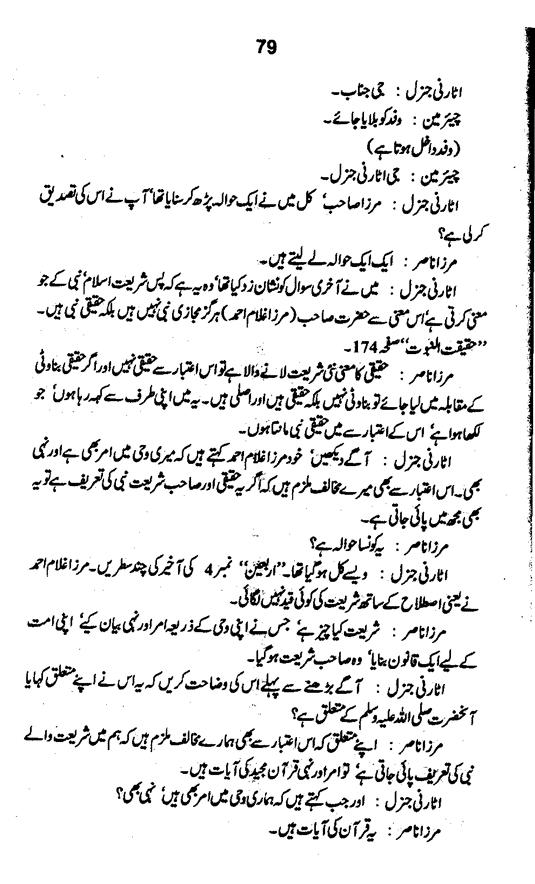 79
اٹارنی جنرل : جی جناب۔
چیئرمین : وفد کو بلایا جائے۔
(وفد داخل ہوتا ہے)
چیئرمین : جی اٹارنی جنرل۔
اٹارنی جنرل : مرزا صاحب‘ کل میں نے ایک حوالہ پڑھ کر سنایا تھا‘ آپ نے اس کی تصدیق
کرلی ہے؟
مرزا ناصر : ایک ایک حوالہ لے لیتے ہیں۔
اٹارنی جنرل : میں نے آخری سوال کو نشان زد کیا تھا‘ وہ یہ ہے کہ پس شریعت اسلام‘ نبی کے جو
معنی کرتی ہے‘ اس معنی سے حضرت صاحب (مرزا غلام احمد) ہرگز مجازی نبی نہیں ہیں بلکہ حقیقی نبی ہیں۔
‘‘حقیقت النبوت’’ صفحہ 174۔
مرزا ناصر : حقیقی کا معنی نئی شریعت لانے والا ہے تو اس اعتبار سے حقیقی نہیں اور اگر حقیقی بناوٹی
کے مقابلہ میں لیا جائے تو بناوٹی نہیں بلکہ حقیقی ہیں اور اصلی ہیں۔ یہ میں اپنی طرف سے کہہ رہا ہوں‘ جو
لکھا ہوا ہے‘ اس کے اعتبار سے میں حقیقی نبی مانتا ہوں۔
اٹارنی جنرل : آگے دیکھیں‘ خود مرزا غلام احمد کہتے ہیں کہ میری وحی میں امر بھی ہے اور نہی
بھی۔ اس اعتبار سے بھی میرے مخالف ملزم ہیں کہ اگر یہ حقیقی اور صاحب شریعت نبی کی تعریف ہے تو یہ
بھی مجھ میں پائی جاتی ہے۔
مرزا ناصر : یہ کونسا حوالہ ہے؟
اٹارنی جنرل : ویسے کل ہوگیا تھا۔ ‘‘اربعین’’ نمبر 4 کی آخیر کی چند سطریں۔ مرزا غلام احمد
نے یعنی اصطلاح کے ساتھ شریعت کی کوئی قید نہیں لگائی۔
مرزا ناصر : شریعت کیا چیز ہے‘ جس نے اپنی وحی کے ذریعہ امر اور نہی بیان کیے‘ اپنی امت
کے لیے ایک قانون بنایا‘ وہ صاحب شریعت ہوگیا۔
اٹارنی جنرل : آگے بڑھنے سے پہلے اس کی وضاحت کریں کہ یہ اس نے اپنے متعلق کہا یا
آنحضرت صلی اللہ علیہ وسلم کے متعلق ہے؟
مرزا ناصر : اپنے متعلق کہ اس اعتبار سے بھی ہمارے مخالف ملزم ہیں کہ ہم میں شریعت والے
نبی کی تعریف پائی جاتی ہے‘ تو امر اور نہی قرآن مجید کی آیات ہیں۔
اٹارنی جنرل : اور جب کہتے ہیں کہ ہماری وحی میں امر بھی ہیں‘ نہی بھی؟
مرزا ناصر : یہ قرآن کی آیات ہیں۔